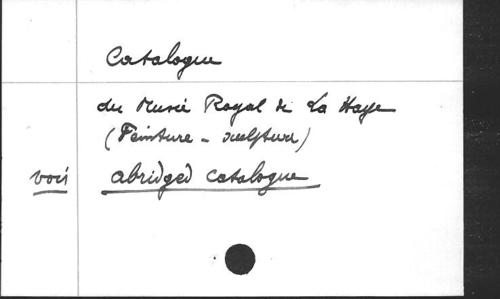 Catalogue
du Musée Royal de La Haye
(Peinture - sculpture)
voir abridged catalogue